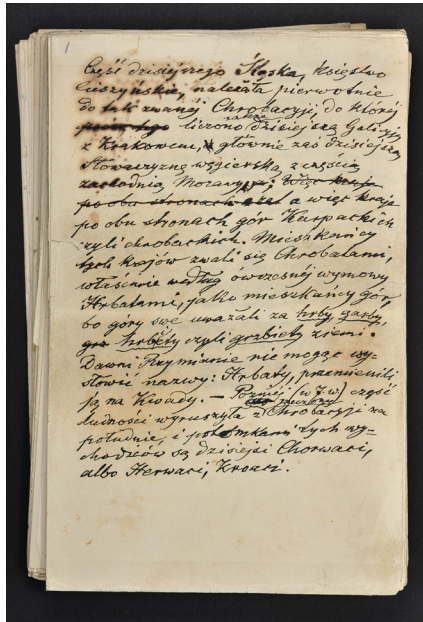 1
Część dzisiejszego Śląska, Księstwo
Cieszyńskie, należała pierwotnie
do tak zwanéj Chrobacyji, do któréj
liczono także dzisiejszą Galicyją
z Krakowem, głównie zaś dzisiejszą
Słowaczyznę węgierską z częścią
zachodnią Morawy, Więc kraje
po obu stronach a więc kraje
po obu stronach gór Karpackich
czyli chrobackich. Mieszkańcy
tych krajów zwali się Chrobatami,
właściwie według ówczesnéj wymowy
Hrbatami, jako mieszkańcy gór,
bo góry swe uważali za hrby, garby,
hrbéty czyli grzbiety ziemi.
Dawni Rzymianie nie mogąc wy-
słowić nazwy: Hrbaty, przemienili
ją na Kwady. — Poźniéj (w 7. w) część
ludności wyruszyła z Chrobacyji na
południe, i potomkami tych wy-
chodźców są dzisiejsi Chorwaci,
albo Herwaci, Kroaci.